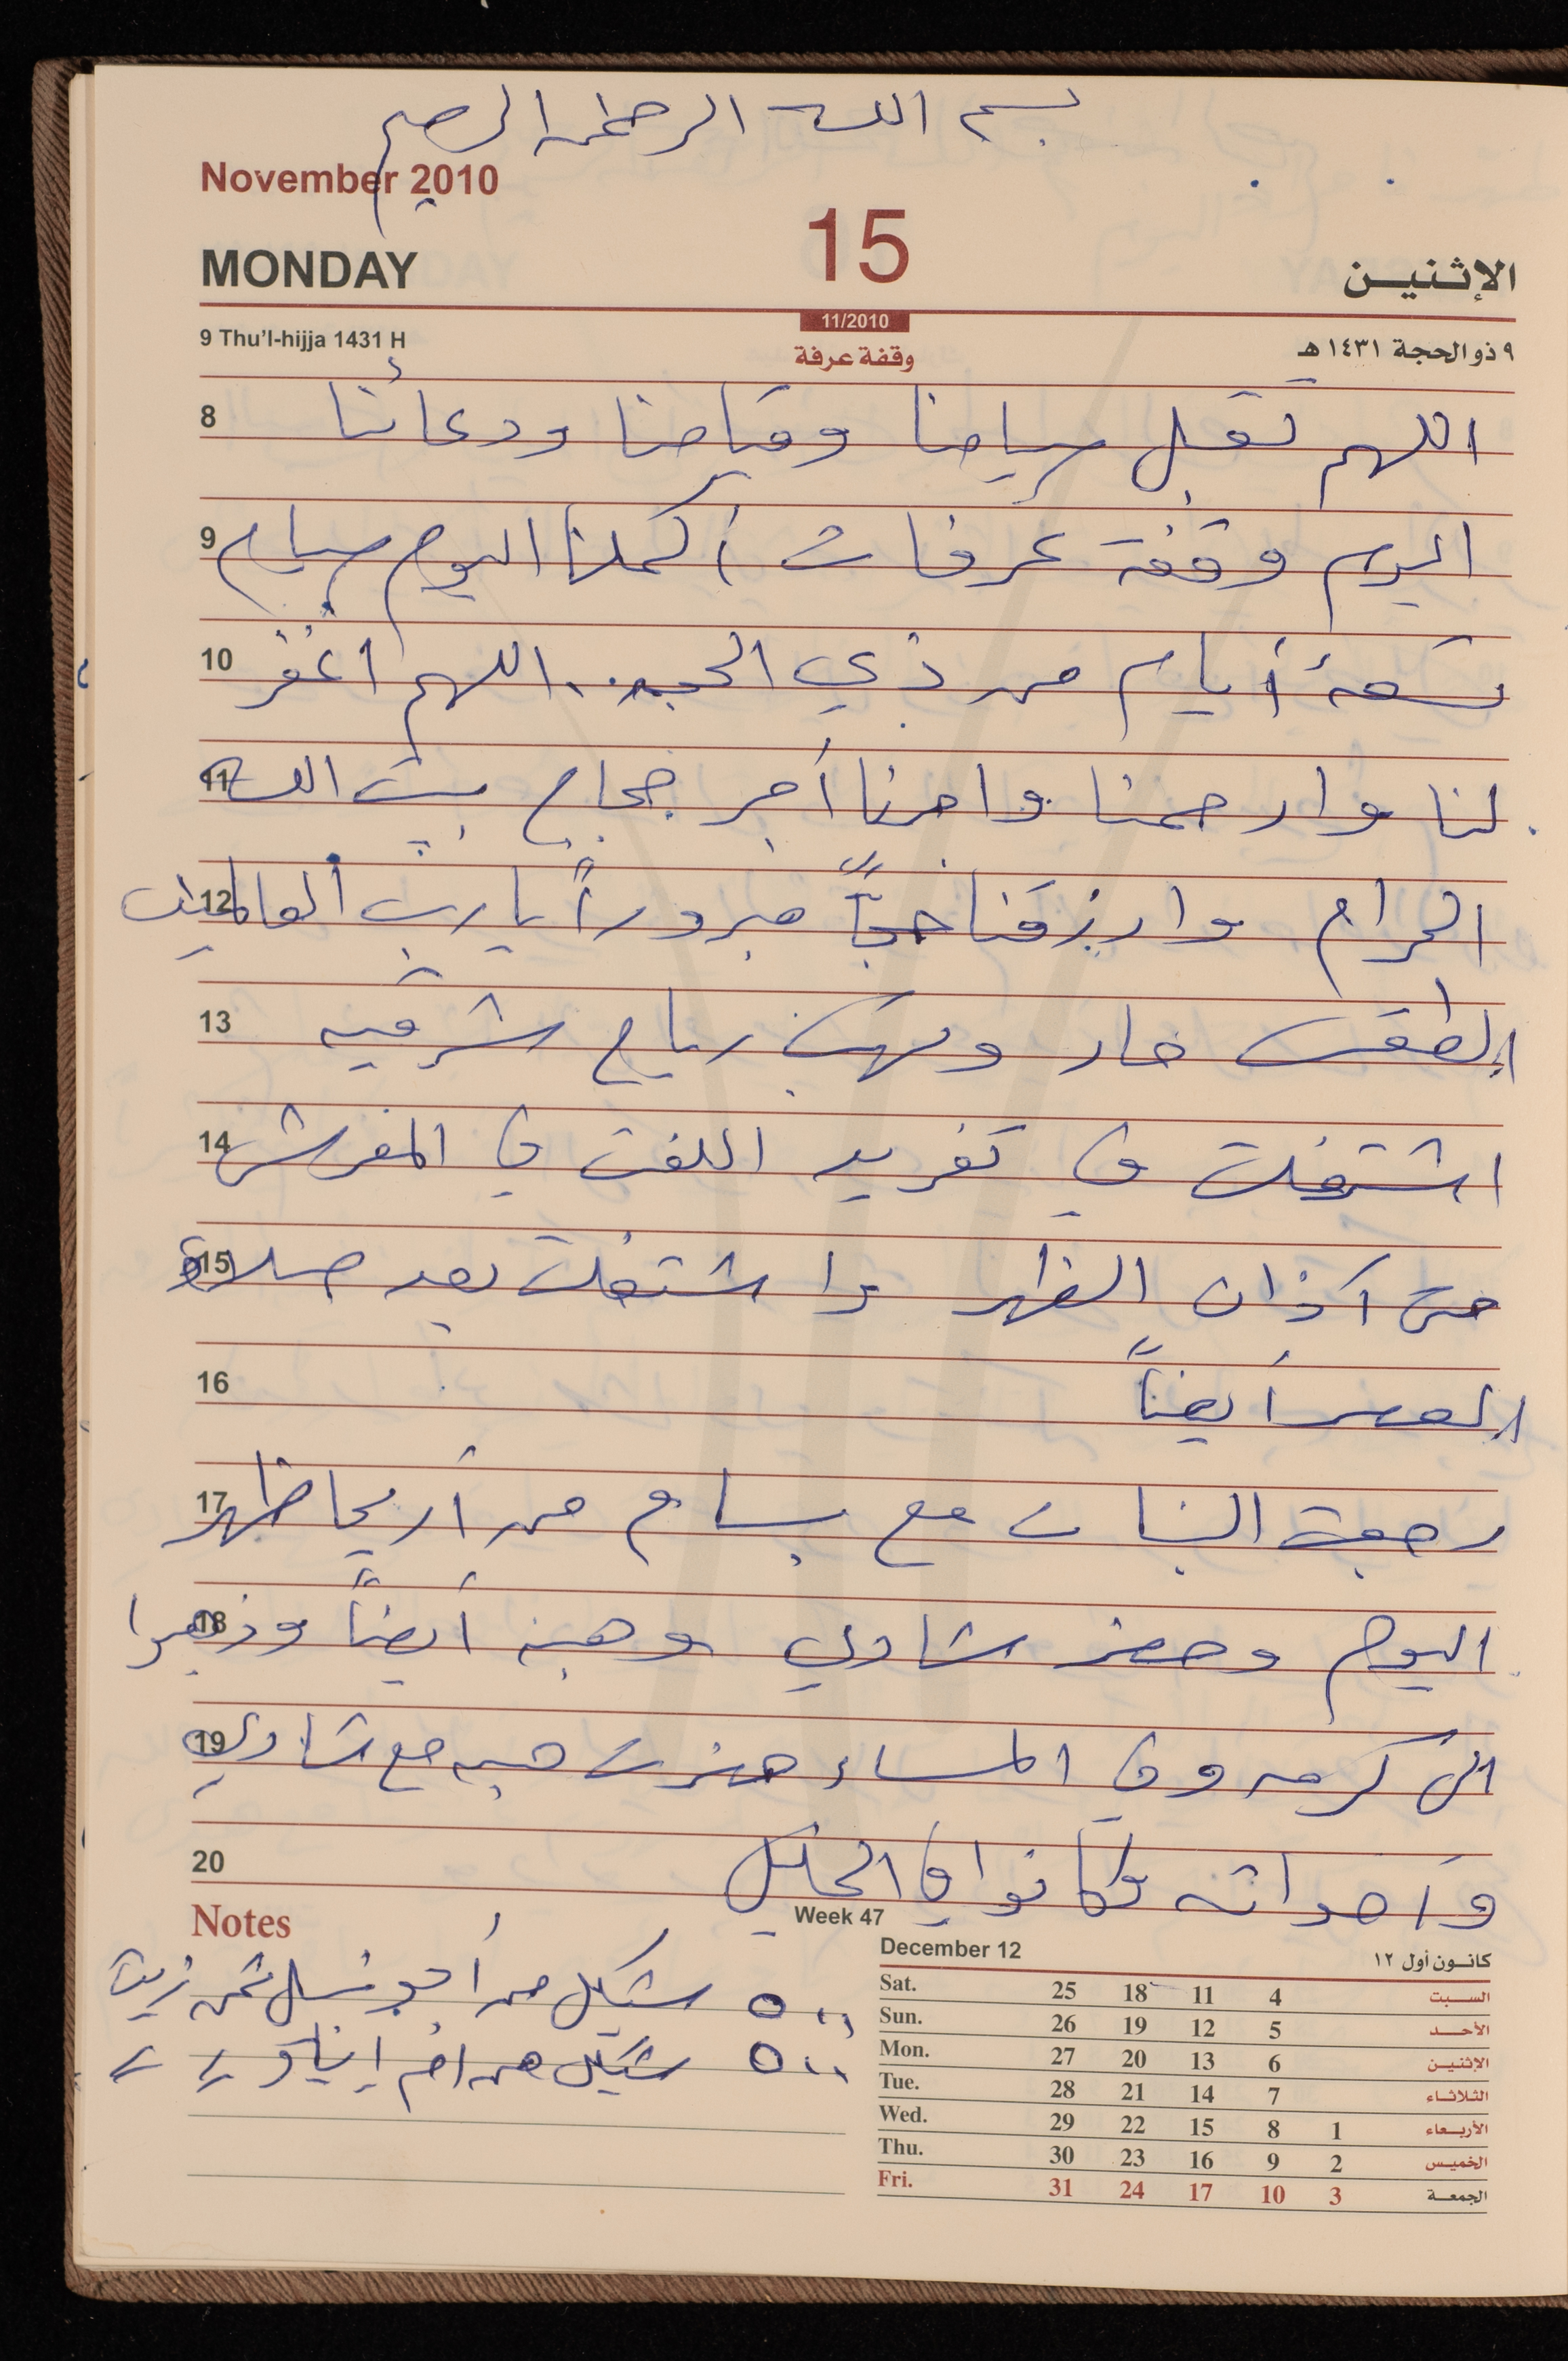 بسم الله الرحمن الرحيم
November 2010
MONDAY 15 الإثنين
11/2010
9 Thu'l-hijja 1431 H وقفة عرفة ٩ ذو الحجة ١٤٣١ هـ
8 اللهم تقبل صيامنا وقيامنا ودعائنا
9 اليوم وقفة عرفات أكملنا اليوم صيام
10 تسعة أيام من ذي الحجة .. اللهم اغفر
11 لنا وارحمنا وامنا أجر حجاج بيت الله
12 الحرام وارزقنا حجاً مبروراً يا رب العالمين
13 الطقس حار وتهب رياح شرقيه
14 اشتغلت في تفريد اللفت في المفرش
15 حتى آذان الظهر واشتغلت بعد صلاة
16 العصر أيضاً
17 رجعت البنات مع بسام من أريحا ظهر
18 اليوم وحضر شادي وهبه أيضاً وذهبوا
19 الى كرمه وفي المساء حضرت هبه مع شادي
20 واخواته وكانوا في الخليل
Notes
Week 47
٥٠٠ شيكل من أبو نسيل ثمن زيت
٥٠٠ شيكل من ام إياد // //
December 12 كانون أول ١٢
Sat. 25 18 11 4 السبت
Sun. 26 19 12 5 الأحد
Mon. 27 20 13 6 الإثنين
Tue. 28 21 14 7 الثلاثاء
Wed. 29 22 15 8 1 الأربعاء
Thu. 30 23 16 9 2 الخميس
Fri. 31 24 17 10 3 الجمعة